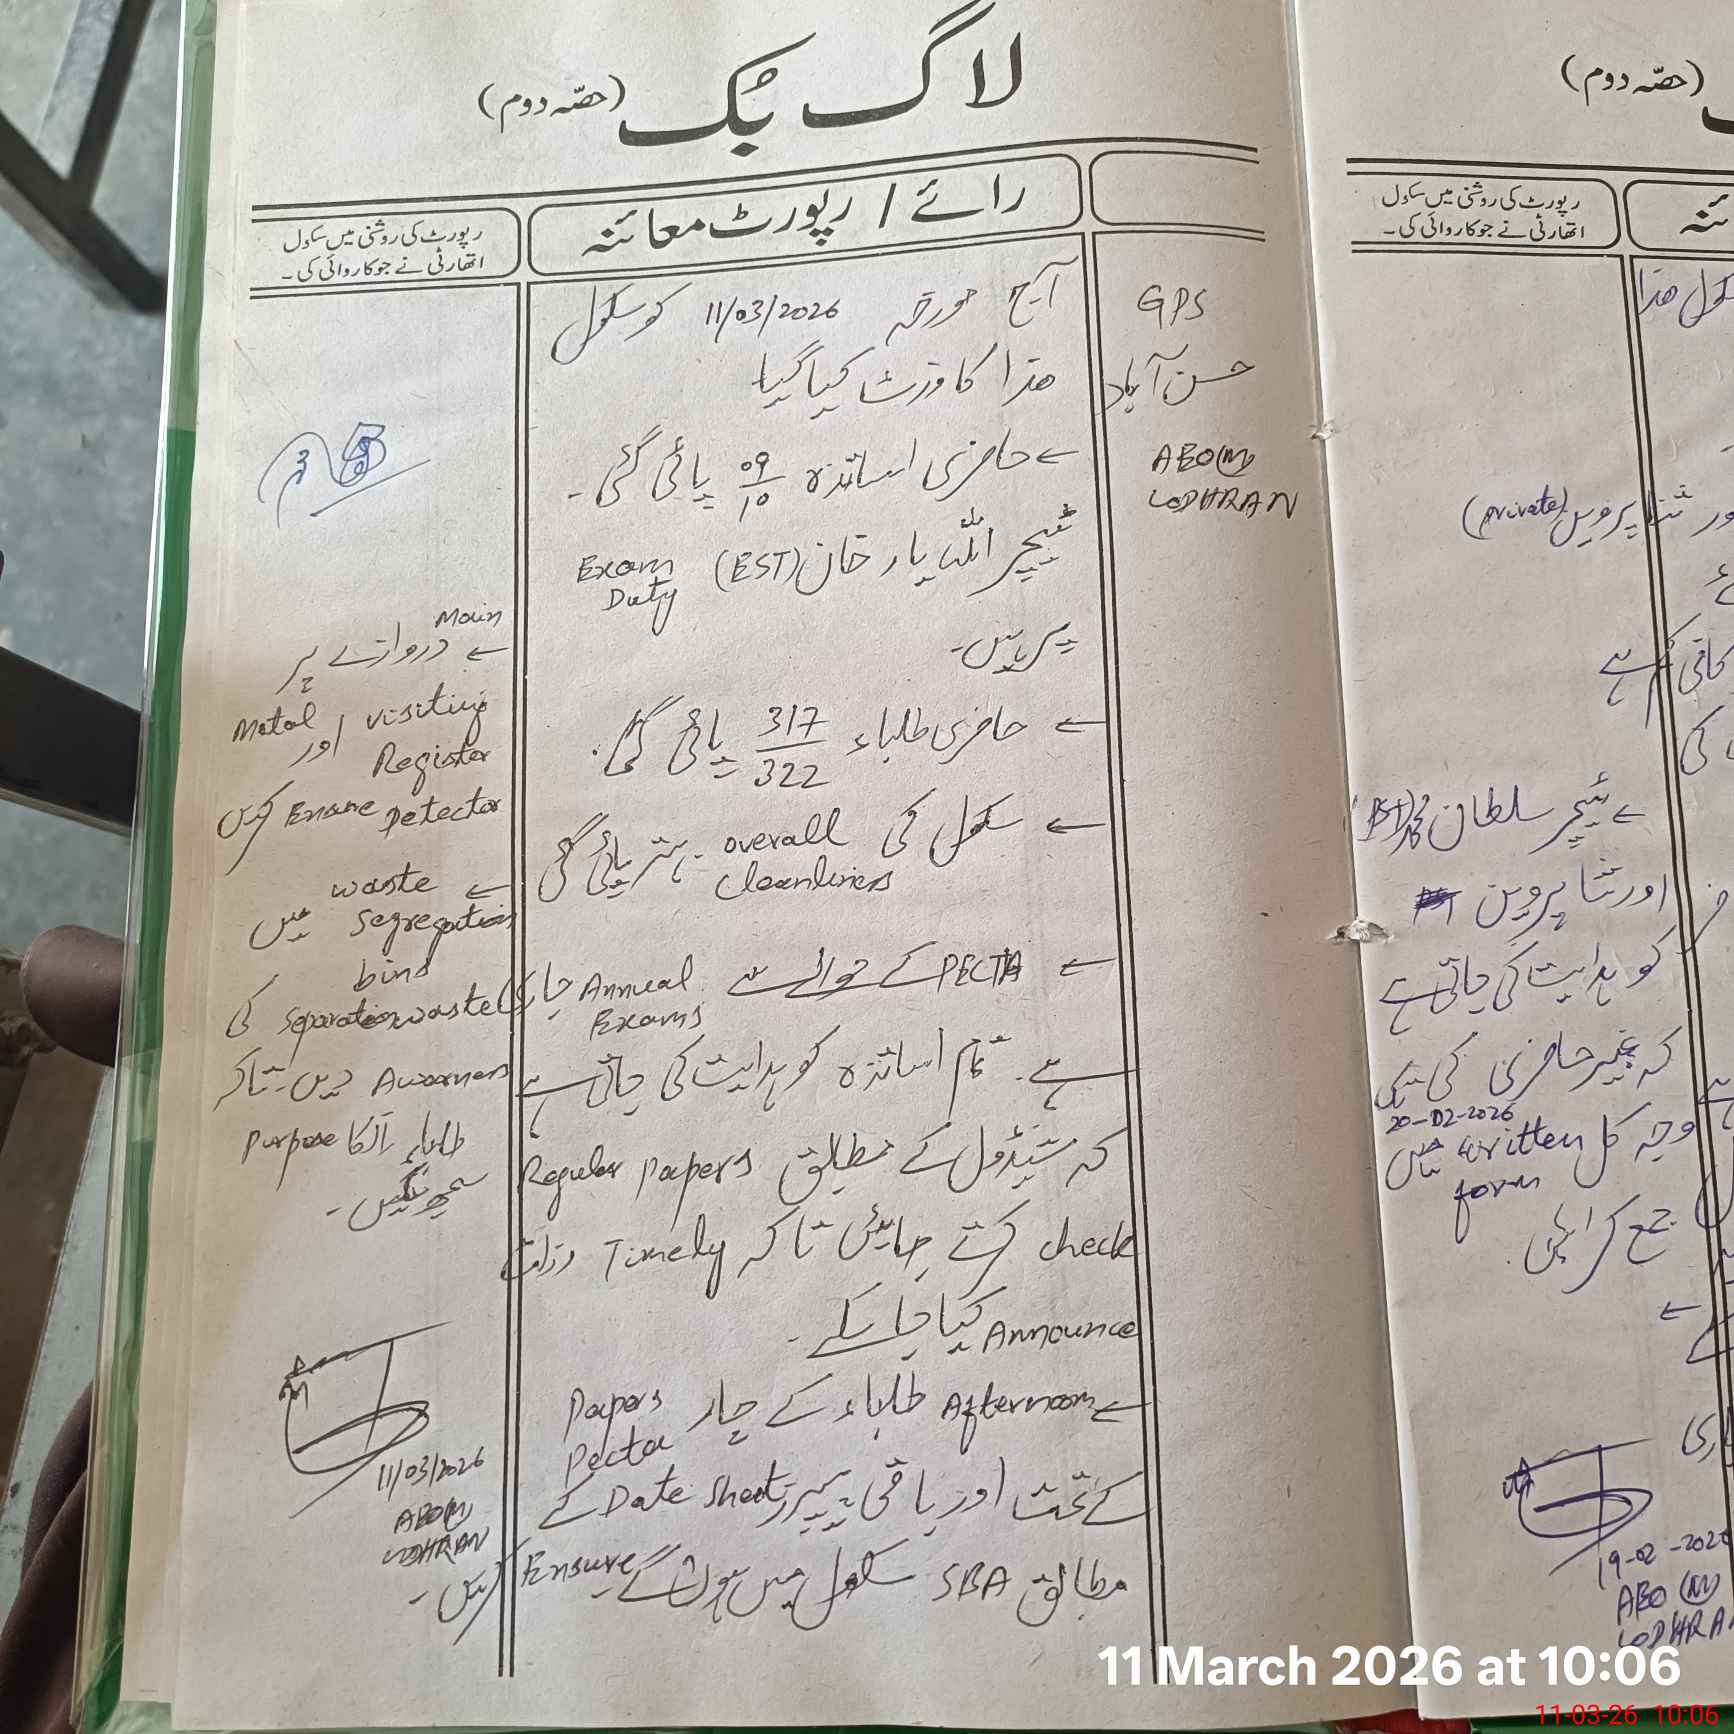 لاگ بک (حصّہ دوم)
رائے / رپورٹ معائنہ
رپورٹ کی روشنی میں سکول
اتھارٹی نے جو کاروائی کی۔
GPS
حسن آباد
AEO(M)
LODHRAN
آج مورخہ 11/03/2026 کو سکول
ھذا کا وزٹ کیا گیا
← حاضری اساتذہ 09/10 پائی گئی۔
ٹیچر اللہ یار خان (EST) Exam Duty
پر ہیں۔
← حاضری طلباء 317/322 پائی گئی.
← سکول کی overall cleanliness بہتر پائی گئی
← PECTA کے حوالے سے Annual Exams جاری
ہے۔ تمام اساتذہ کو ہدایت کی جاتی ہے
کہ شیڈول کے مطابق Regular papers
check کرتے جائیں تاکہ Timely
Announce کیا جا سکے۔
← Afternoon طلباء کے چار Papers Pecta
کے تحت اور باقی پیپرز Date sheet کے
مطابق SBA سکول میں ہوں گے۔ Ensure کریں۔
← Main دروازے پر
visiting Register اور Metal
Detector Ensure کریں
← waste segregation bins میں
waste separation کی
Awarness دیں۔ تاکہ
طلباء اسکا Purpose
سمجھ سکیں۔
11/03/2026
AEO(M)
LODHRAN
(حصّہ دوم)
رپورٹ کی روشنی میں سکول
اتھارٹی نے جو کاروائی کی۔
سکول ھذا
پروین (private)
کافی کم ہے
← ٹیچر سلطان محمد (PST)
اور ثنا پروین
کو ہدایت کی جاتی ہے
کہ غیر حاضری کی
وجہ کل 20-02-2026 تک written form میں
جمع کرائیں.
19-02-2026
AEO (M)
LODHRAN
11 March 2026 at 10:06
11-03-26 10:06